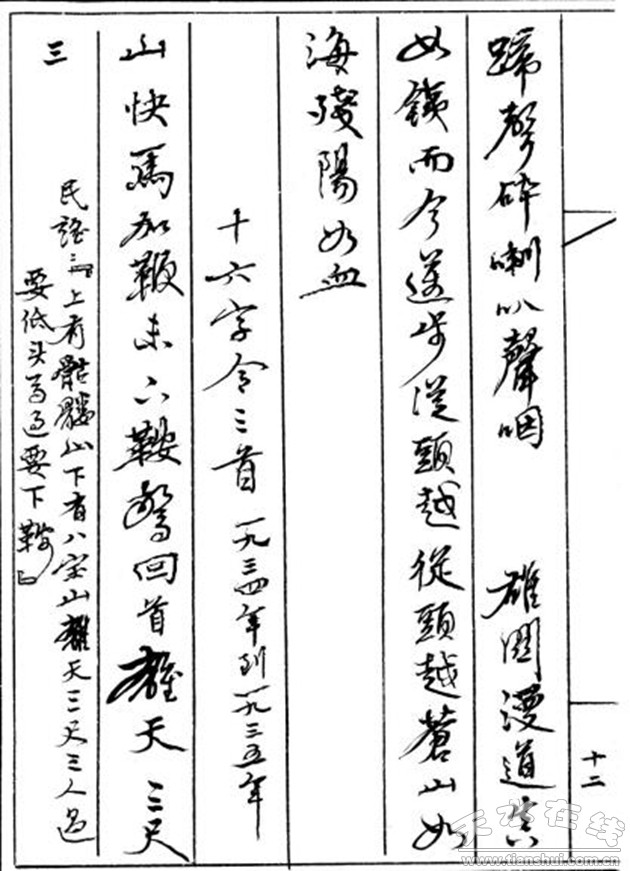 十二
蹄聲碎喇叭聲咽 雄関漫道真
如鉄而今邁步従頭越從頭越蒼山如
海殘陽如血
十六字令三首 一九三四年到一九三五年
山快馬加鞭未下鞍驚回首離天三尺
三
民謡『上有骷髏山下有八宝山離天三尺三人過
要低头馬过要下鞍』
天水在线
www.tianshui.com.cn